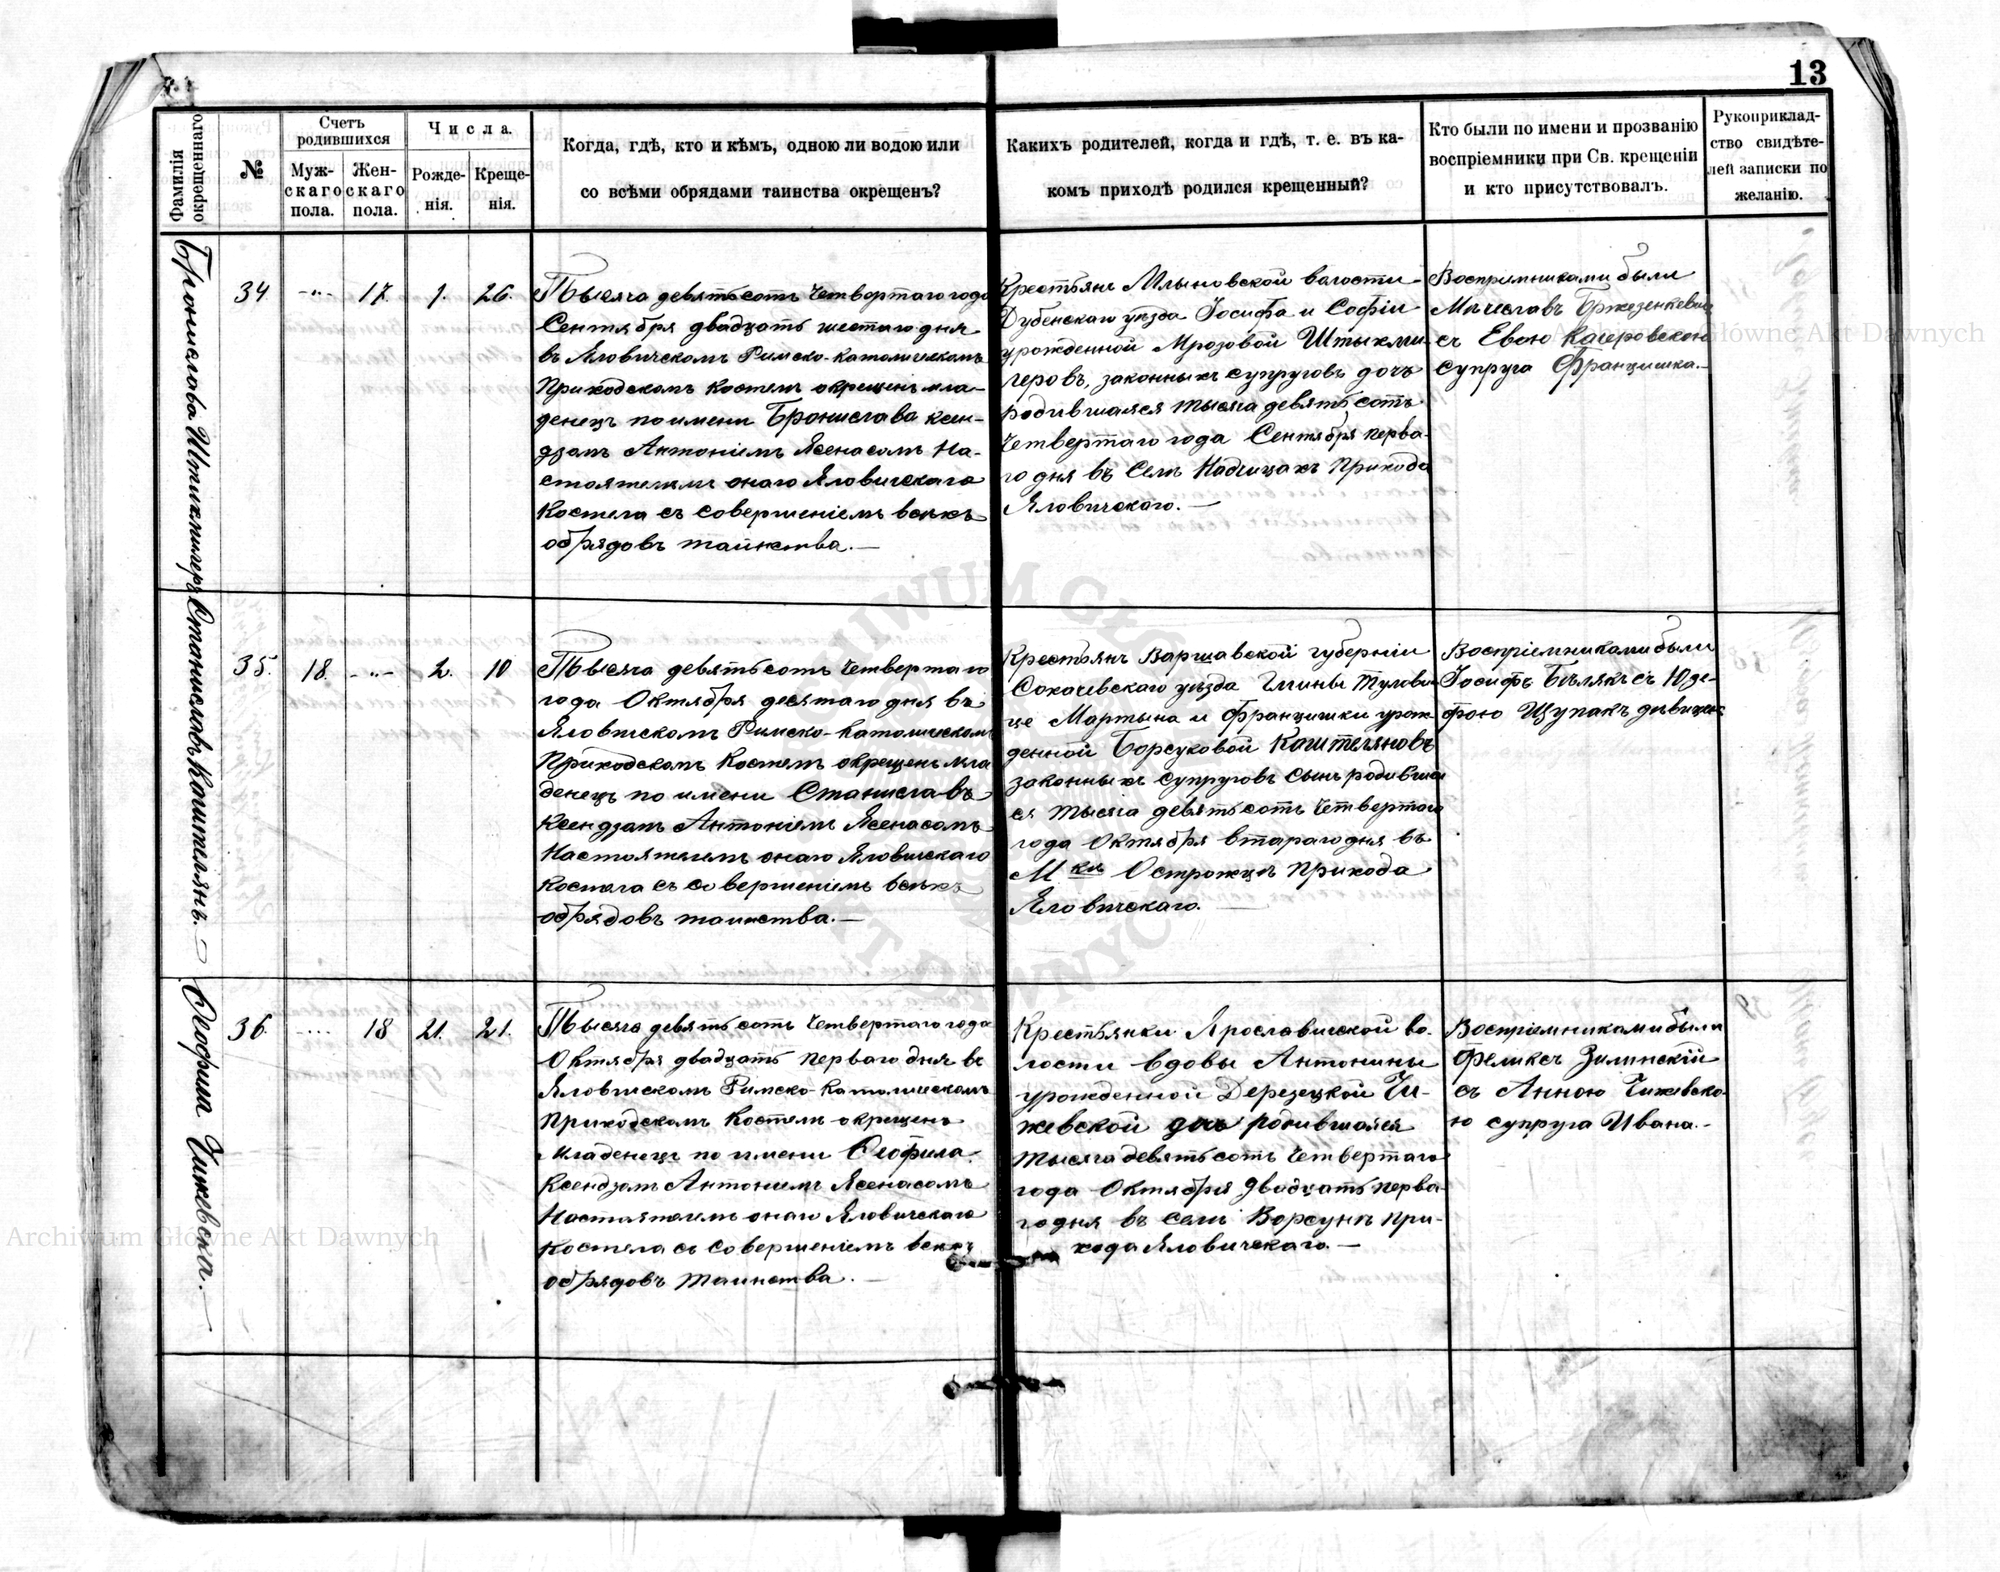 13
Фамилія
окрещеннаго.
№
Счетъ
родившихся
Муж-
скаго
пола.
Жен-
скаго
пола.
Числа.
Рожде-
нія.
Креще-
нія.
Когда, гдѣ, кто и кѣмъ, одною ли водою или
со всѣми обрядами таинства окрещенъ?
Какихъ родителей, когда и гдѣ, т. е. въ ка-
комъ приходѣ родился крещенный?
Кто были по имени и прозванію
воспріемники при Св. крещеніи
и кто присутствовалъ.
Рукоприклад-
ство свидѣте-
лей записки по
желанію.
Бронислава Штикмилеръ
34.
-"-
17.
1.
26.
Тысяча девятьсотъ четвертаго года
Сентября двадцать шестаго дня
въ Яловичскомъ Римско-католическомъ
Приходскомъ костелѣ окрещенъ мла-
денецъ по имени Бронислава ксен-
дзомъ Антоніемъ Ясенасомъ На-
стоятелемъ онаго Яловичскаго
Костела съ совершеніемъ всѣхъ
обрядовъ таинства.—
Крестьянъ Млыновской волости
Дубенскаго уѣзда Іосифа и Софіи
урожденной Мрозовой Штыкми-
леровъ, законныхъ супруговъ дочь
родившаяся тысяча девятьсотъ
четвертаго года Сентября перва-
го дня въ селѣ Надчицахъ прихода
Яловичского.—
Воспріемниками были
Мечеславъ Бржезенкевичъ
съ Евою Кагеровскою
супруга Францишка.—
Станиславъ Коштелянъ.—
35.
18.
-"-
2.
10
Тысяча девятьсотъ четвертаго
года Октября десятаго дня въ
Яловичскомъ Римско-католическомъ
Приходскомъ костелѣ окрещенъ мла
денецъ по имени Станиславъ
Ксендзомъ Антоніемъ Ясенасомъ
Настоятелемъ онаго Яловичскаго
Костела съ совершеніемъ всѣхъ
обрядовъ таинства.—
Крестьянъ Варшавской губерніи
Сохачевскаго уѣзда Гмины Тулови-
це Мартына и Францишки урож-
денной Борсуковой Коштеляновъ
законныхъ супруговъ сынъ родивший
ся тысяча девятьсотъ четвертаго
года Октября втораго дня въ
Мкѣ Острожцѣ прихода
Яловичскаго.—
Воспріемниками были
Іосифъ Бѣлякъ съ Юзе-
фою Щупакъ девицею
Теофила Чижевская.—
36.
-"-
18
21.
21.
Тысяча девятьсотъ четвертаго года
Октября двадцать перваго дня въ
Яловичскомъ Римско-католическомъ
Приходскомъ костелѣ окрещенъ
младенецъ по имени Теофила
Ксендзомъ Антоніемъ Ясенасомъ
Настоятелемъ онаго Яловичскаго
Костела съ совершеніемъ всѣхъ
обрядовъ таинства.—
Крестьянки Ярославичской во-
лости вдовы Антонины
урожденной Дерезецкой Чи-
жевской дочь родившаяся
тысяча девятьсотъ четвертаго
года Октября двадцать перва-
го дня въ селѣ Ворсунѣ при-
хода Яловичскаго.—
Воспріемниками были
Феликсъ Зилинскій
съ Анною Чижевско-
ю супруга Ивана.—
Archiwum Główne Akt Dawnych
Archiwum Główne Akt Dawnych